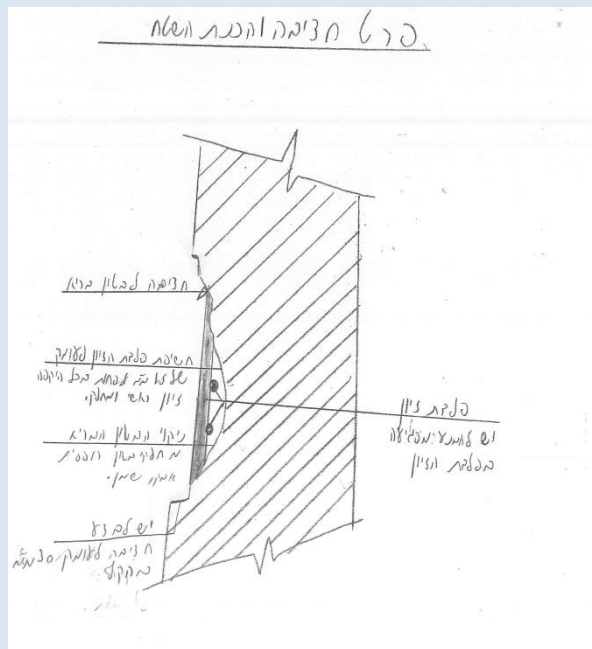 פרט חציבה והכנת השטח
חציבה לבטון בריא
חשיפת פלדת הזיון לעומק
של 20 מ"מ לפחות בכל היקפה
זיון ראשי ומחלק.
ניקוי הבטון הבריא
מחלקי בטון רופפים
אבק שמן.
יש לבצע
חציבה לעומק 30 מ"מ
במקביל
פלדת זיון
יש להמנע מפגיעה
בפלדת הזיון